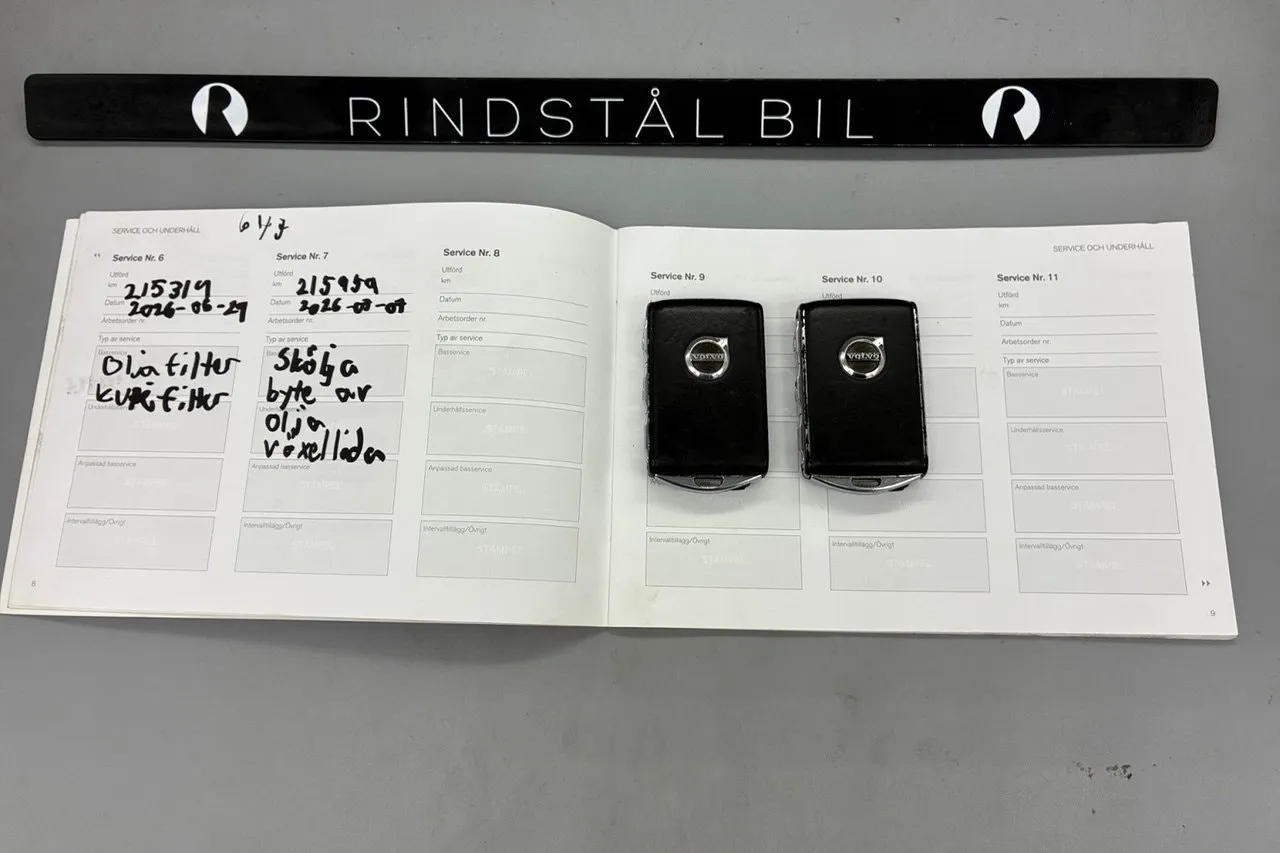 RINDSTÅL BIL
SERVICE OCH UNDERHÅLL
Service Nr. 6
Utförd
km 215319
Datum 2026-06-29
Arbetsorder nr.
Typ av service
Basservice
Olja filter
kupéfilter
Underhållsservice
STÄMPEL
Anpassad basservice
STÄMPEL
Intervalltillägg/Övrigt
STÄMPEL
8
Service Nr. 7
Utförd
km 215959
Datum 2026-07-07
Arbetsorder nr.
Typ av service
Basservice
Skölja
byte av
olja
växellådan
Anpassad basservice
STÄMPEL
Intervalltillägg/Övrigt
STÄMPEL
Service Nr. 8
Utförd
km
Datum
Arbetsorder nr.
Typ av service
Basservice
STÄMPEL
Underhållsservice
STÄMPEL
Anpassad basservice
STÄMPEL
Intervalltillägg/Övrigt
STÄMPEL
SERVICE OCH UNDERHÅLL
Service Nr. 9
Utförd
VOLVO
Intervalltillägg/Övrigt
STÄMPEL
Service Nr. 10
Utförd
VOLVO
Intervalltillägg/Övrigt
STÄMPEL
Service Nr. 11
Utförd
km
Datum
Arbetsorder nr.
Typ av service
Basservice
STÄMPEL
Underhållsservice
STÄMPEL
Anpassad basservice
STÄMPEL
Intervalltillägg/Övrigt
STÄMPEL
9